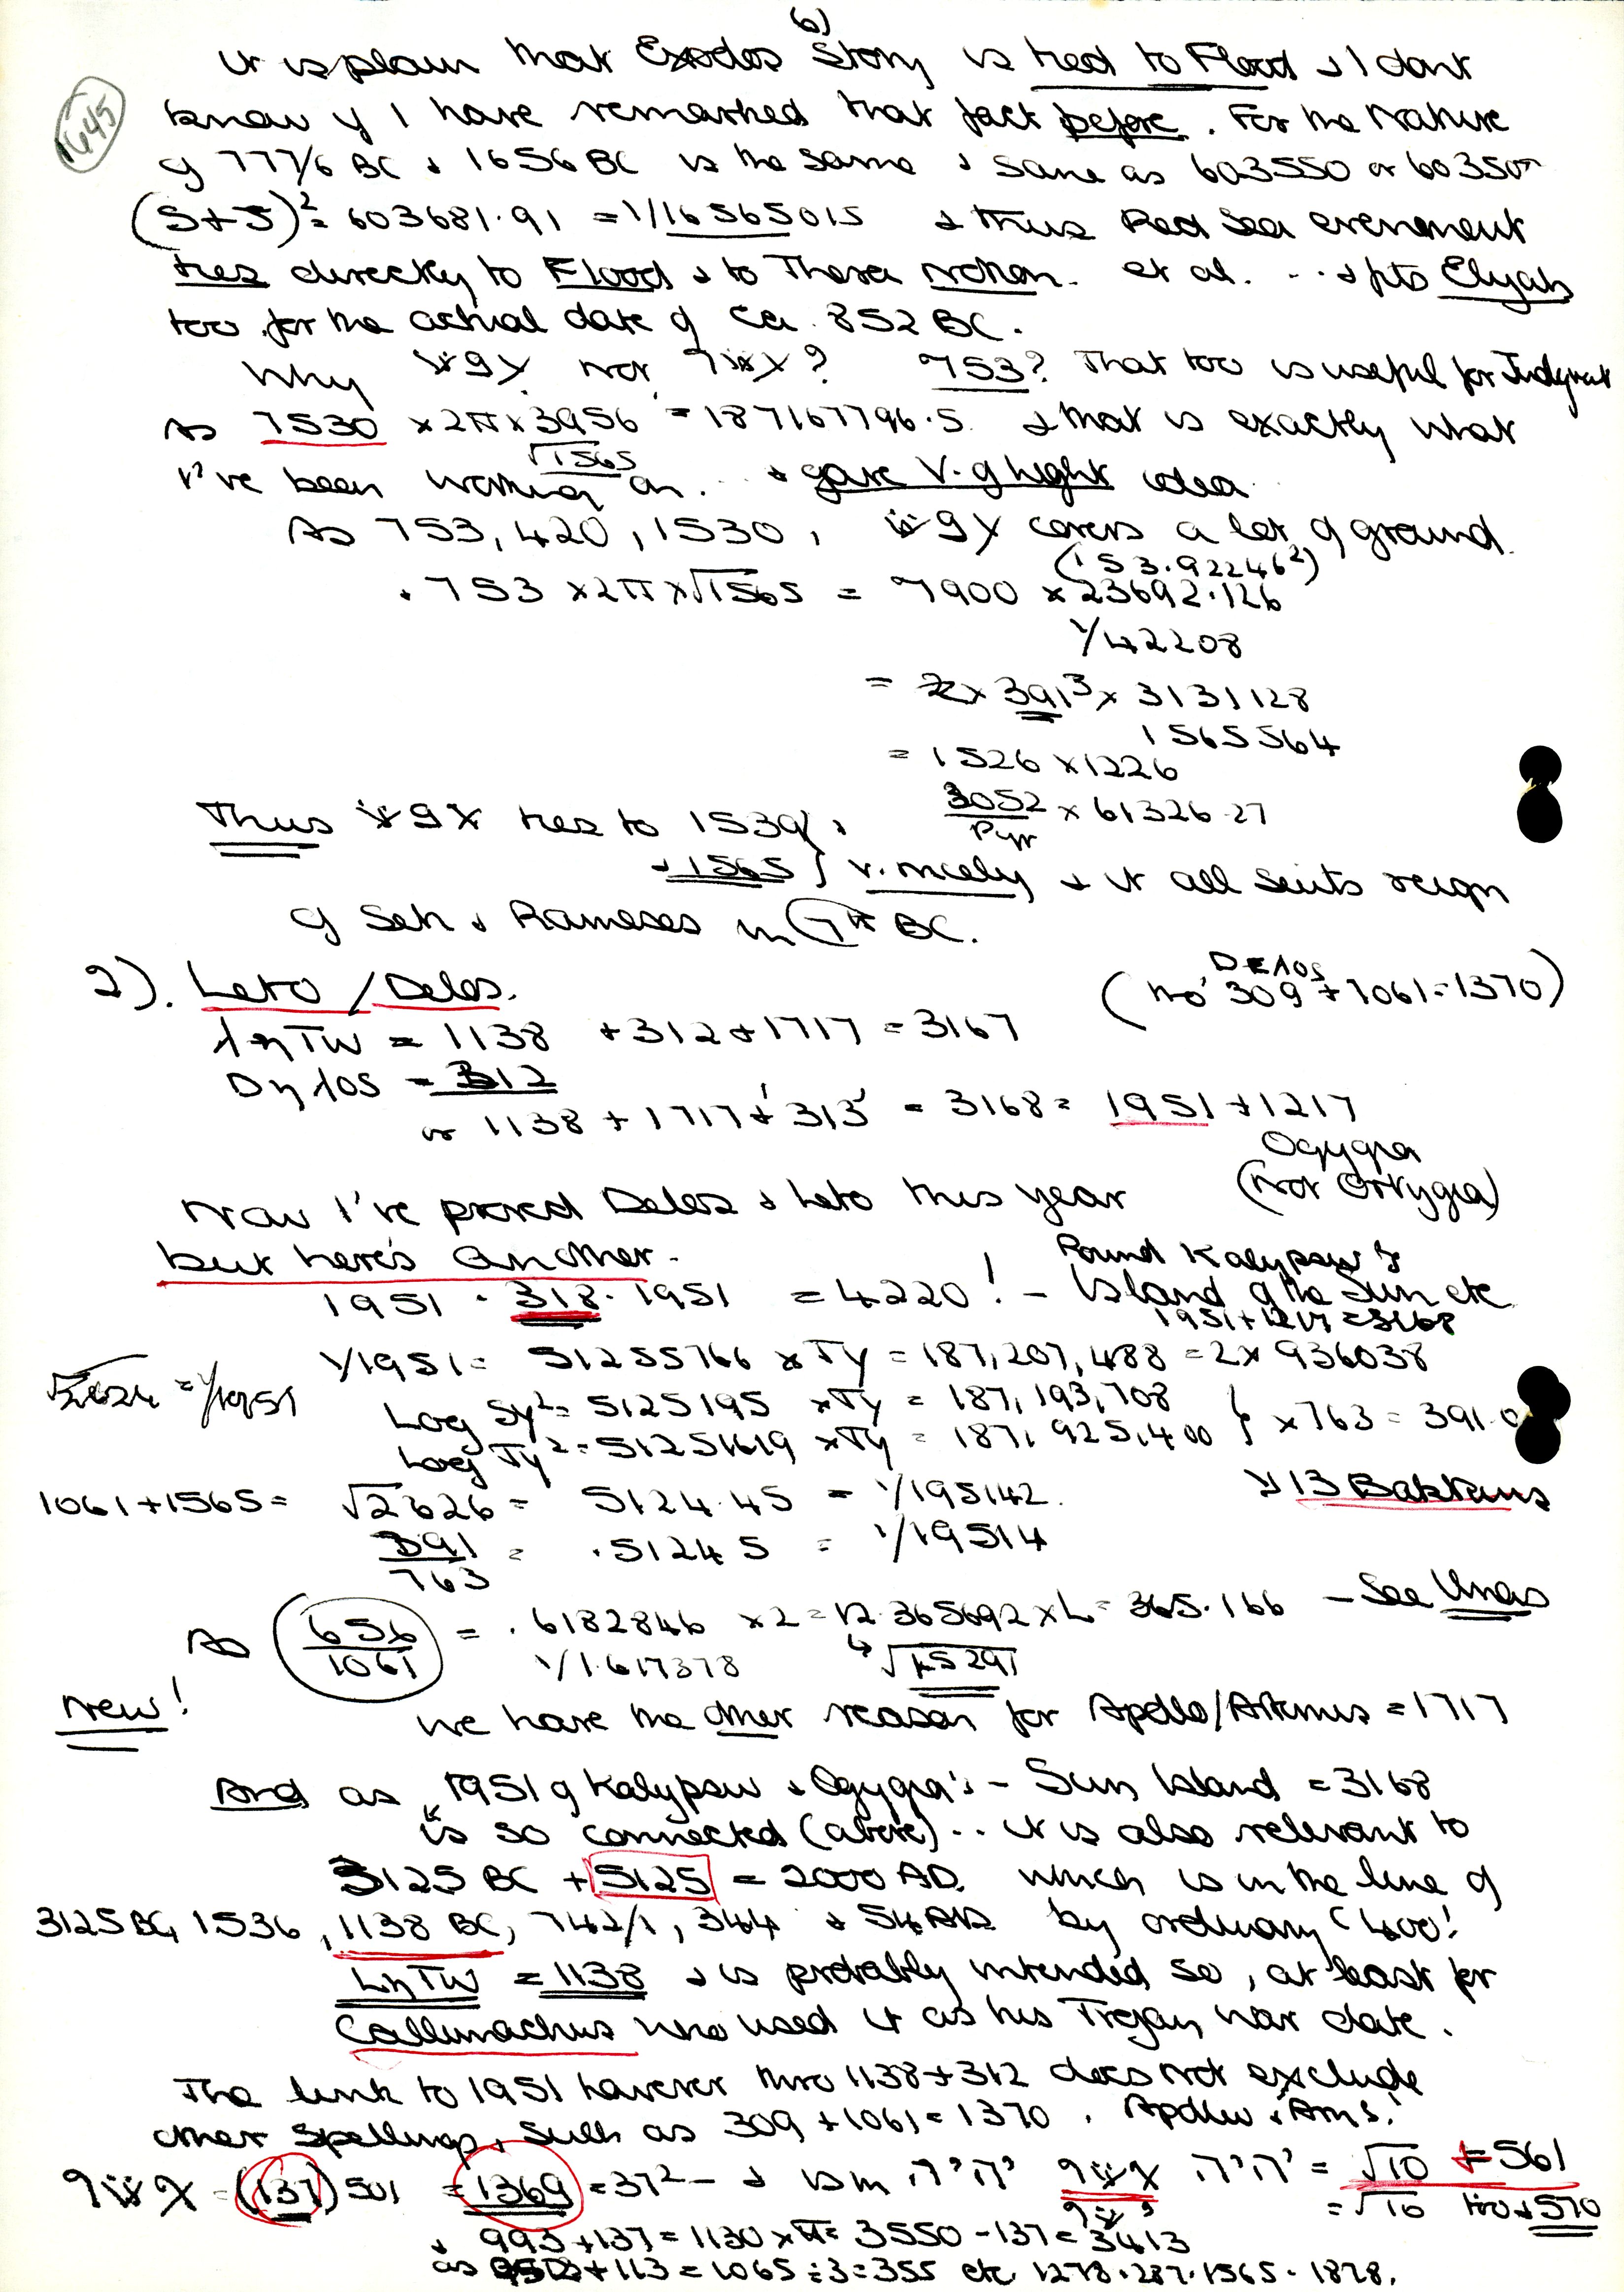 6)
1645
It is plain that Exodos Story is tied to Flood & I dont
know if I have remarked that fact before. For the Nature
of 777/6 BC & 1656 BC is the same & same as 603550 or 60350
(S+J)² = 603681.91 = 1/16565015 & thus Red Sea evenement
ties directly to Flood & to Thera notion. et al. ... & pts Elijah
too, for the actual date of ca. 852 BC.
Why not ? 753? That too is useful for Judgment
As 7530 × 2π × 3956 = 187167796.5 & that is exactly what
√1565
I've been working on. ... & gave V. of light idea
As 753, 420, 1530, covers a lot of ground.
(153.92246²)
.753 × 2π × √1565 = 7900 × 23692.126
1/42208
= 2 × 391³ × 3131128
1565564
= 1526 × 1226
3052 × 61326.27
Pyr
Thus ties to 1530 &
& 1565 } v. nicely & it all suits reign
of Seti & Rameses in 7th BC.
2). Leto / Delos.
(no' ΔΕΛΟΣ 309 + 1061 = 1370)
ΛηΤω = 1138 + 312 + 1717 = 3167
Dηλος = 312
or 1138 + 1717 + '313' = 3168 = 1951 + 1217
Ogygia
(not Ortygia)
Now I've proved Delos & Leto this year
but here's another.
1951 . 318 . 1951 = 4220! - Found Kalypsow &
Island of the Sun etc
1951 + 1217 = 3168
1/1951 = 51255766 × Ty = 187,207,488 = 2 × 936038
= 1/1951
Log Sy² = 5125195 × Ty = 187,193,708
Log Ty² = 51251619 × Ty = 187,925,400 } × 763 = 391.0
1061 + 1565 = √2626 = 5124.45 = 1/195142.
& 13 Baktuns
391/763 = .51245 = 1/19514
As (656/1061) = .6182846 × 2 = 12.365692 × L = 365.166 - See Unas
1/1.617378 √15291
New!
We have the other reason for Apollo/Artemis = 1717
And as 1951 of Kalypsow & Ogygia's - Sun Island = 3168
is so connected (above) .. it is also relevant to
3125 BC + 5125 = 2000 AD. which is in the line of
3125 BC, 1536, 1138 BC, 742/1, 344 & 54 AD by ordinary C 400!
LηΤω = 1138 & is probably intended so, at least for
Callimachus who used it as his Trojan War date.
The link to 1951 however thro 1138 + 312 does not exclude
other spellings, such as 309 + 1061 = 1370. Apollw & Arms!
= (137) 501 = 1369 = 37² - & is in יהיה = √10 + = 561
= √10 & 570
& 993 + 137 = 1130 × π = 3550 - 137 = 3413
as + 113 = 1065 ÷ 3 = 355 etc. 1278.287.1565.1878.